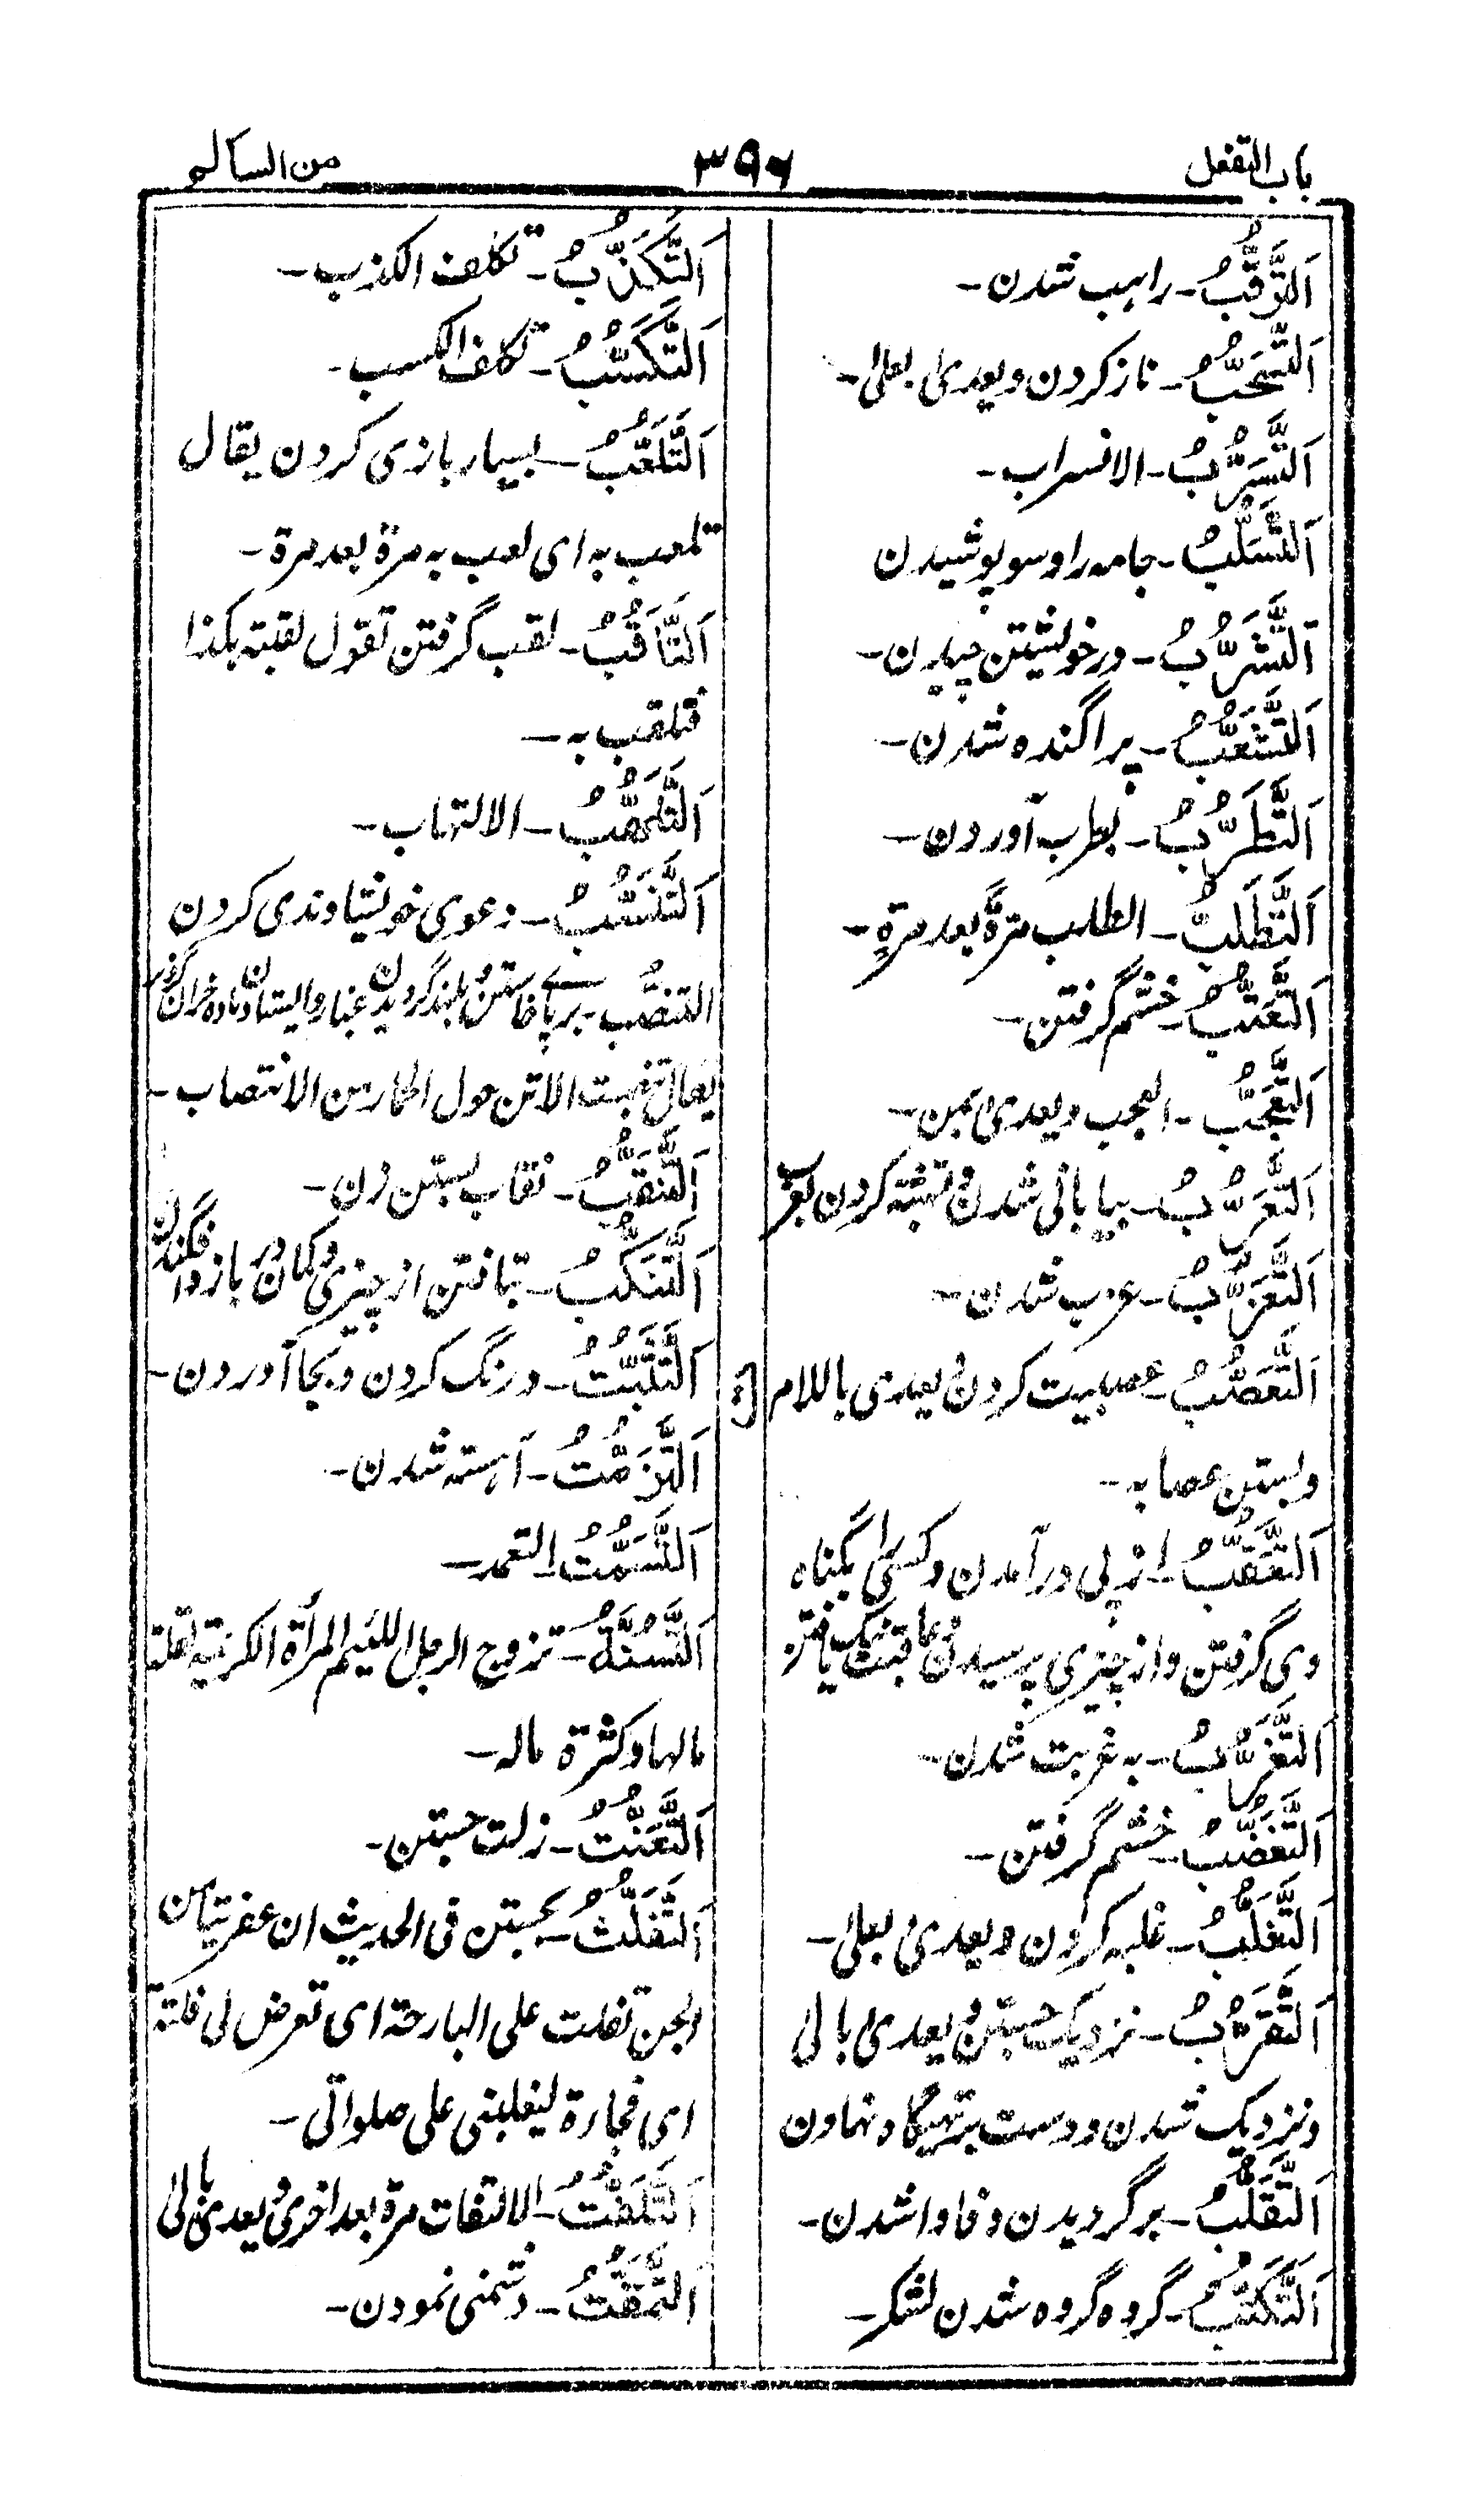 باب التفعل
۳۹۶
من السالم
اَلتَّرَقُّبُ ـ راہب شدن ـ
اَلتَّسَحُّبُ ـ ناز کردن و یعدیٰ بعلیٰ ـ
اَلتَّسَرُّبُ ـ الانسراب ـ
اَلتَّسَلُّبُ ـ جامه را وسو پوشیدن
اَلتَّشَرُّبُ ـ در خویشتن چیدن ـ
اَلتَّشَعُّبُ ـ پراگنده شدن ـ
اَلتَّطَرُّبُ ـ بطرب آوردن ـ
اَلتَّطَلُّبُ ـ الطلب مرةً بعد مرةٍ ـ
اَلتَّعَتُّبُ ـ خشم گرفتن ـ
اَلتَّعَجُّبُ ـ العجب و یعدیٰ بمن ـ
اَلتَّعَرُّبُ ـ بیابانی شدن و تشبّه کردن بعرب
اَلتَّعَزُّبُ ـ عزب شدن ـ
اَلتَّعَصُّبُ ـ عصبیت کردن و یعدی باللام
و بستن عصابه ـ
اَلتَّعَقُّبُ ـ از پی درآمدن و کسی را بگناه
وی گرفتن و از چیزی پرسیدن و عاقبت نیک یافتن
اَلتَّغَرُّبُ ـ به غربت شدن ـ
اَلتَّغَضُّبُ ـ خشم گرفتن ـ
اَلتَّغَلُّبُ ـ غلبه کردن و یعدیٰ بعلیٰ ـ
اَلتَّقَرُّبُ ـ نزدیک جستن و یعدیٰ بالیٰ
و نزدیک شدن و دست بر تهیگاه نهادن
اَلتَّقَلُّبُ ـ برگردیدن و فاواشدن ـ
اَلتَّكَتُّبُ ـ گروه گروه شدن لشکر ـ
اَلتَّكَذُّبُ ـ تکلف الکذب ـ
اَلتَّكَسُّبُ ـ تکلف الکسب ـ
اَلتَّلَعُّبُ ـ بسیار بازی کردن یقال
تلعب به ای لعب به مرة بعد مرة ـ
اَلتَّلَقُّبُ ـ لقب گرفتن تقول لقبته بکذا
فتلقب به ـ
اَلتَّلَهُّبُ ـ الالتهاب ـ
اَلتَّنَسُّبُ ـ دعوی خویشاوندی کردن
التنصُّب ـ برپای خاستن و بلند گردیدن غبار و ایستادن ماده خران گرد خر
یقال تنصبت الاتن حول الحمار من الانتصاب ـ
اَلتَّنَقُّبُ ـ نقاب بستن زن ـ
اَلتَّنَكُّبُ ـ تافتن از چیزی و کمان در بازو افگندن
اَلتَّثَبُّتُ ـ درنگ کردن و بجا آوردن ـ
اَلتَّزَمُّتُ ـ آهسته شدن ـ
اَلتَّسَمُّتُ ـ التعمد ـ
اَلتَّسَنُّتُ ـ تزوج الرجل اللئیم المرأة الکریمة لقلة
مالها و کثرة ماله ـ
اَلتَّعَنُّتُ ـ زلت جستن ـ
اَلتَّفَلُّتُ ـ بجستن فی الحدیث ان عفریتا من
الجن تفلت علی البارحة ای تعرض لی فلتة
ای فجاءة لیغلبنی علی صلواتی ـ
اَلتَّلَفُّتُ ـ الالتفات مرة بعد اخریٰ و یعدیٰ بالیٰ
اَلتَّمَقُّتُ ـ دشمنی نمودن ـ